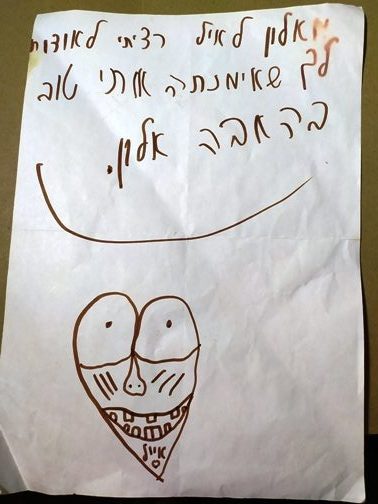 מאלון לאיל רציתי לאודות
לך שאימנתה אותי טוב
בהאבה אלון.
אייל